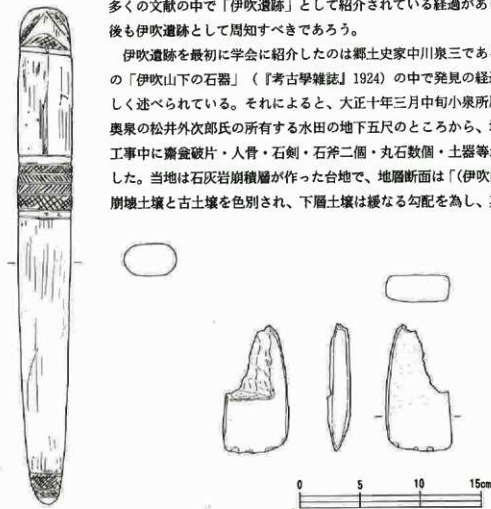 多くの文献の中で「伊吹遺跡」として紹介されている経過があ
後も伊吹遺跡として周知すべきであろう。
伊吹遺跡を最初に学会に紹介したのは郷土史家中川泉三であ
の「伊吹山下の石器」（『考古學雑誌』1924）の中で発見の経
しく述べられている。それによると、大正十年三月中旬小泉所
奥泉の松井外次郎氏の所有する水田の地下五尺のところから、
工事中に齋瓮破片・人骨・石剣・石斧二個・丸石数個・土器等
した。当地は石灰岩崩積層が作った台地で、地層断面は「(伊吹
崩壊土壌と古土壌を色別され、下層土壌は緩なる勾配を為し、
0 5 10 15cm